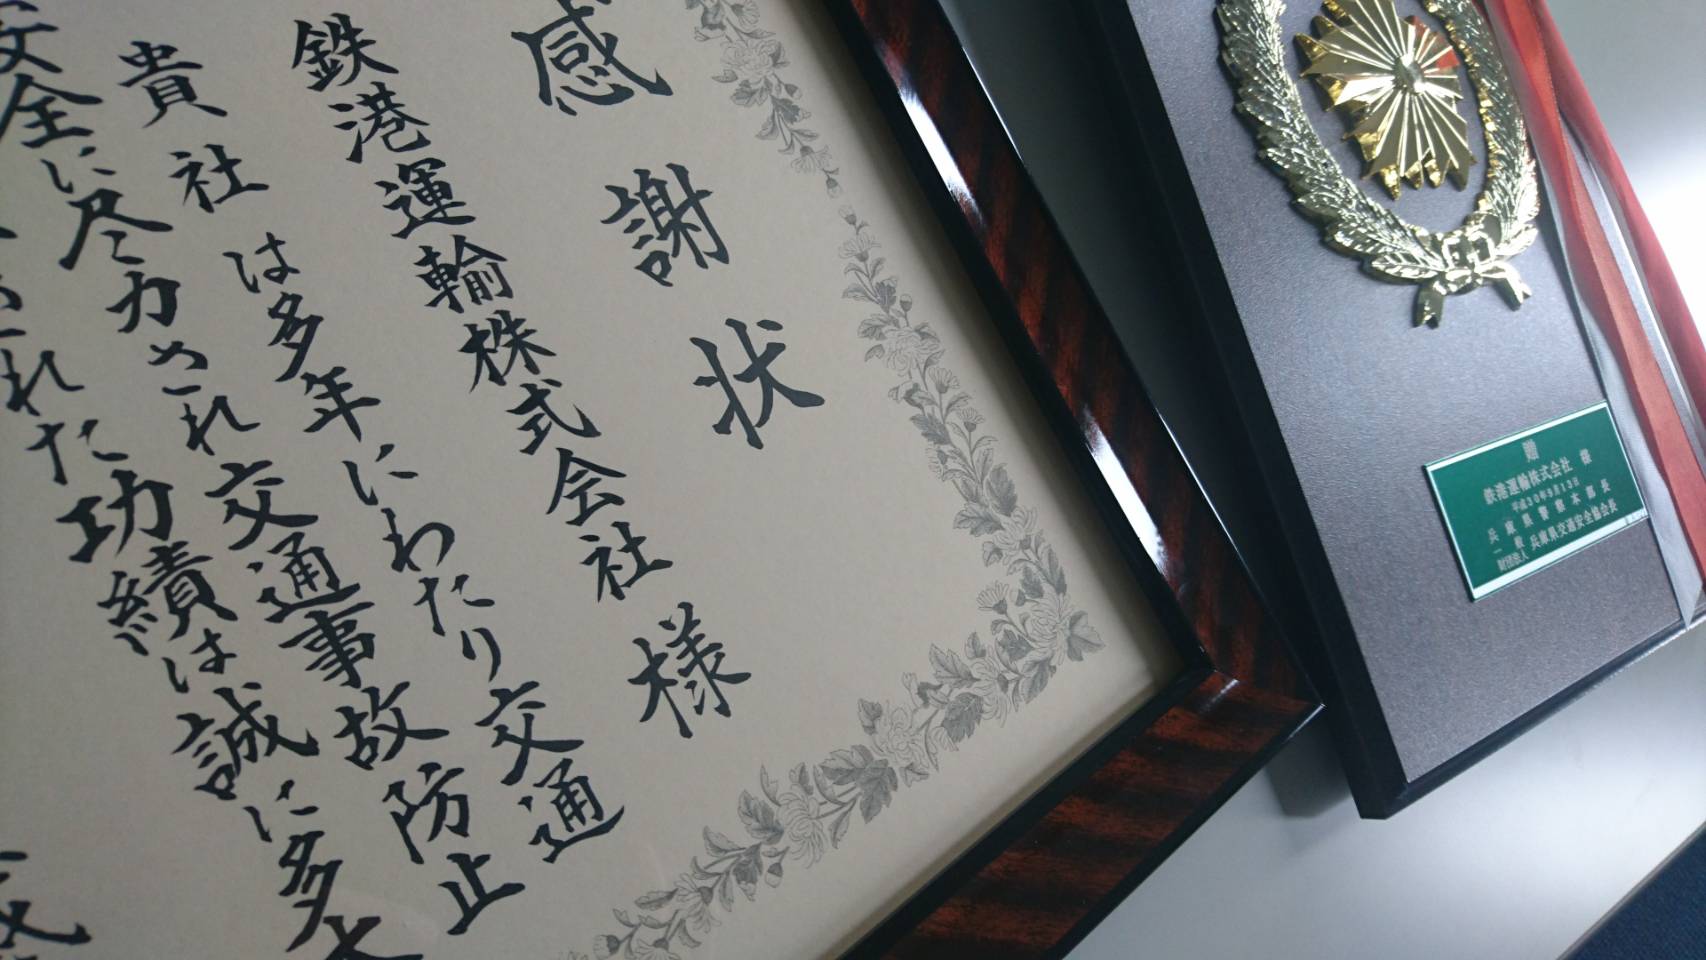 感謝状
鉄港運輸株式会社 様
貴社は多年にわたり交通
安全に尽力され交通事故防止
された功績は誠に多大
贈
鉄港運輸株式会社 様
平成30年9月13日
兵庫県警察本部長
一般財団法人 兵庫県交通安全協会長